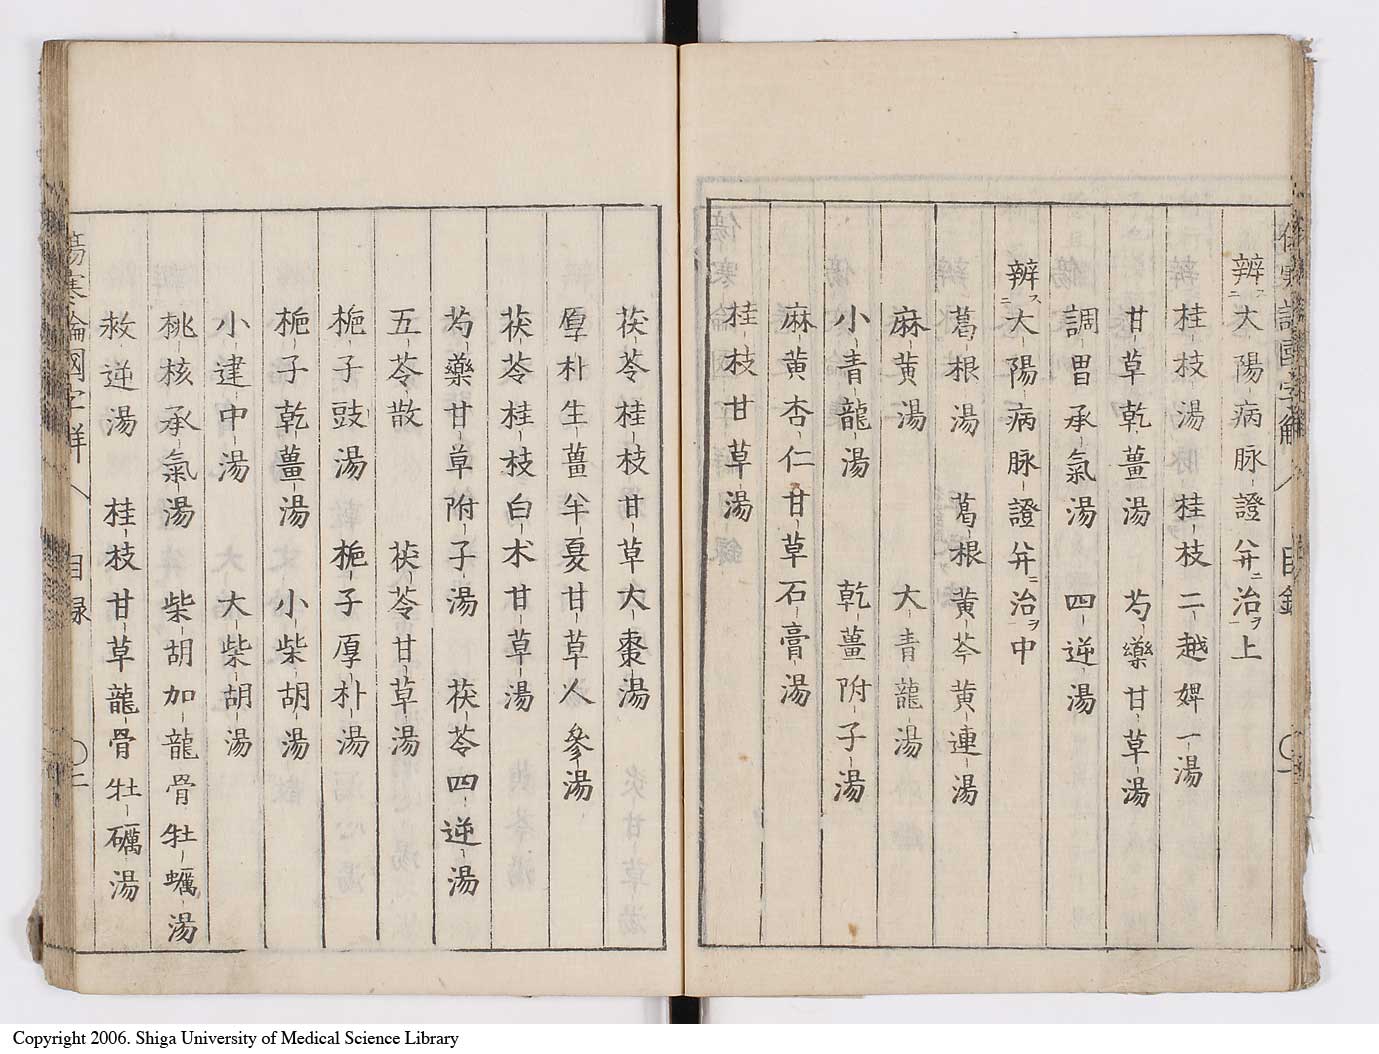 辨ス大陽病脉證并ニ治ヲ上
桂枝湯 桂枝二越婢一湯
甘草乾薑湯 芍藥甘草湯
調胃承氣湯 四逆湯
辨ス大陽病脉證并ニ治ヲ中
葛根湯 葛根黃芩黃連湯
麻黃湯 大青龍湯
小青龍湯 乾薑附子湯
麻黃杏仁甘草石膏湯
桂枝甘草湯
茯苓桂枝甘草大棗湯
厚朴生薑半夏甘草人參湯
茯苓桂枝白朮甘草湯
芍藥甘草附子湯 茯苓四逆湯
五苓散 茯苓甘草湯
梔子豉湯 梔子厚朴湯
梔子乾薑湯 小柴胡湯
小建中湯 大柴胡湯
桃核承氣湯 柴胡加龍骨牡蠣湯
救逆湯 桂枝甘草龍骨牡礪湯
傷寒論國字解 目録 二
Copyright 2006. Shiga University of Medical Science Library